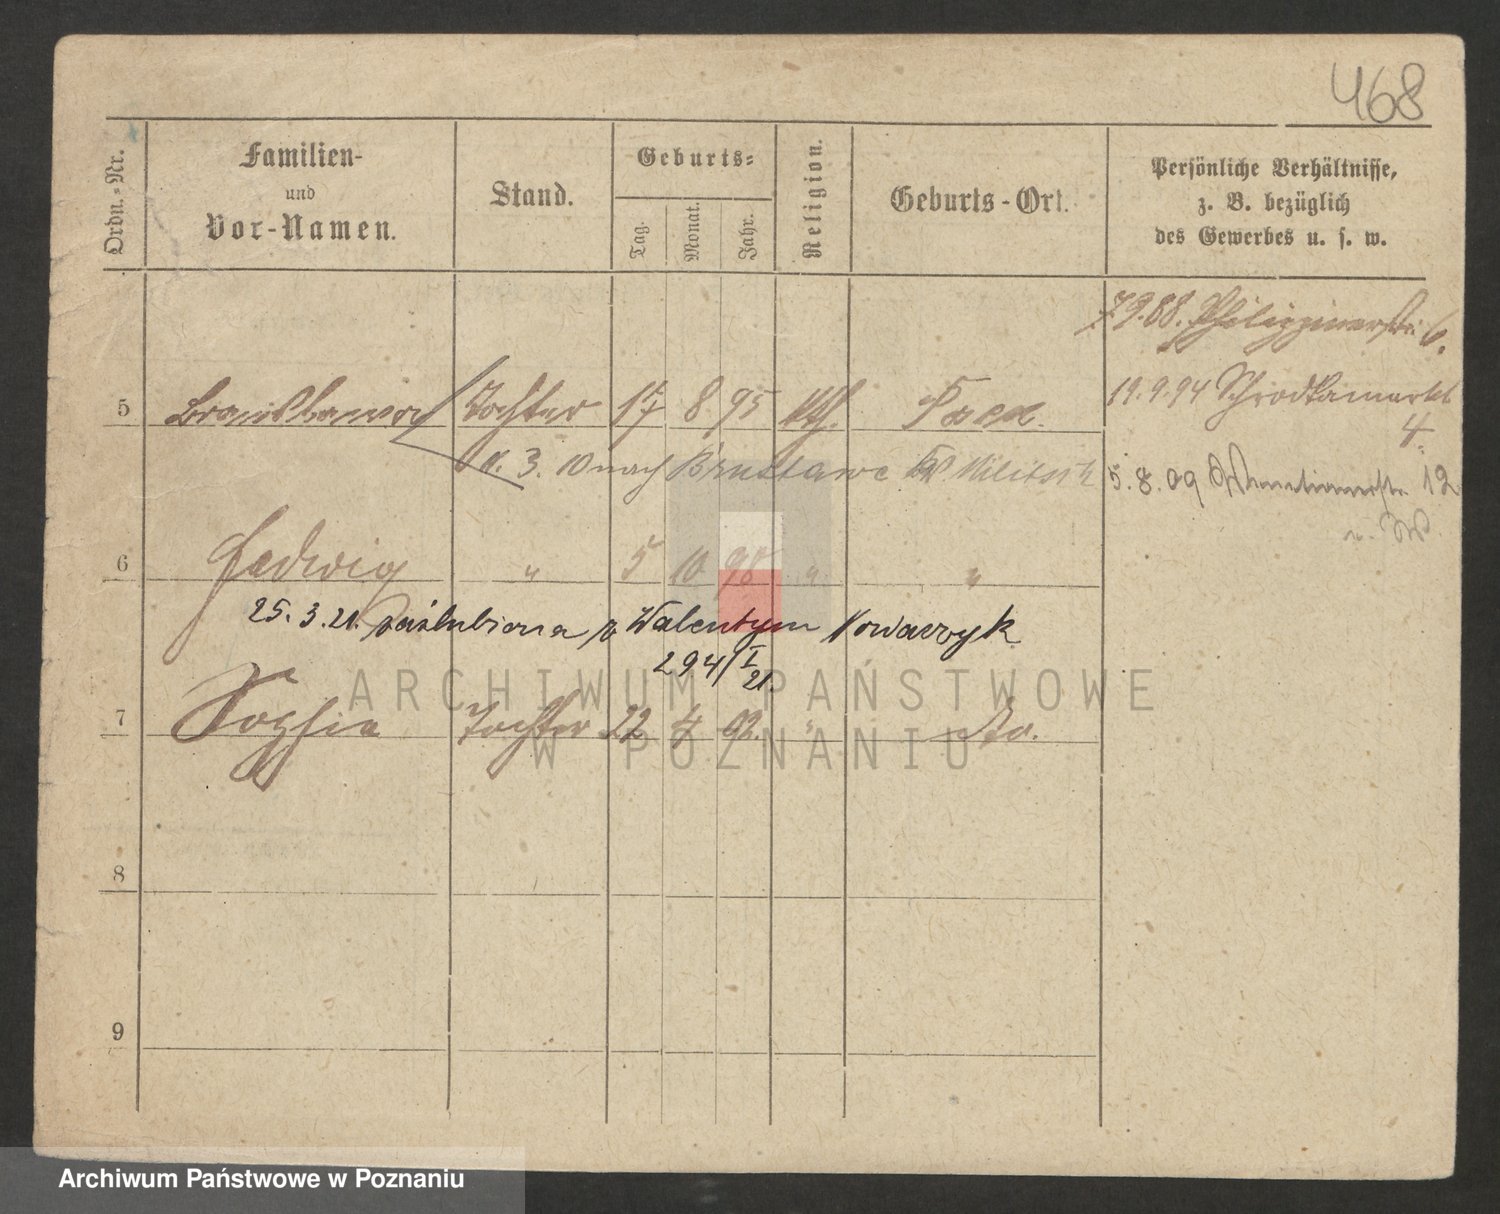 468
Ordn.-Nr.
Familien- und Vor-Namen.
Stand.
Geburts-
Tag. Monat. Jahr.
Religion.
Geburts-Ort.
Persönliche Verhältnisse,
z. B. bezüglich
des Gewerbes u. s. w.
7.9.88. Philippinerstr. 6.
19.9.94 Schrodkamarkt
4.
5 Tochter 17 8 95 kth. Posen.
3. 10 nach Brustawe Kr Militsch
5.8.09 12
6 Hedwig " 5 10 98 " "
25.3.21. zaślubiona z Walentym Nowaczyk
294/I 21.
7 Sophie Tochter 22 4 02. " do.
8
9
ARCHIWUM PAŃSTWOWE
W POZNANIU
Archiwum Państwowe w Poznaniu